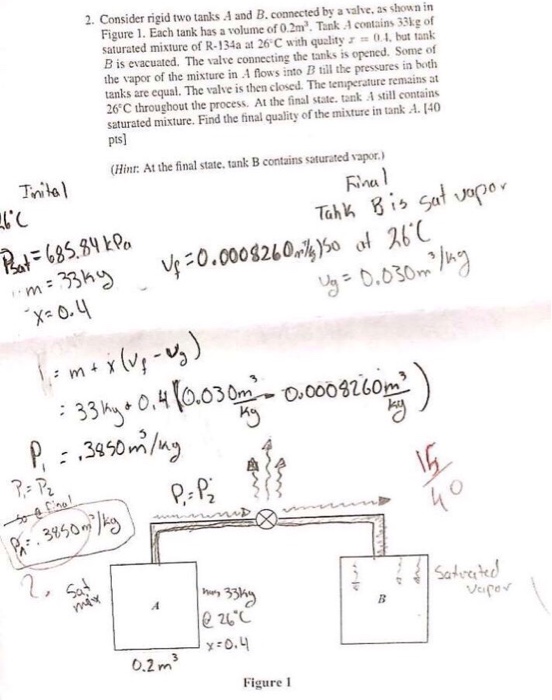 2. Consider rigid two tanks A and B, connected by a valve, as shown in
Figure 1. Each tank has a volume of 0.2m³. Tank A contains 33kg of
saturated mixture of R-134a at 26°C with quality x = 0.4, but tank
B is evacuated. The valve connecting the tanks is opened. Some of
the vapor of the mixture in A flows into B till the pressures in both
tanks are equal. The valve is then closed. The temperature remains at
26°C throughout the process. At the final state, tank A still contains
saturated mixture. Find the final quality of the mixture in tank A. [40
pts]
(Hint: At the final state, tank B contains saturated vapor.)
Inital
26°C
Psat = 685.84 kPa
m = 33kg
x = 0.4
Final
Tank B is sat vapor
Vf = 0.0008260 m³/kg) so at 26°C
Vg = 0.030 m³/kg
= m + x (Vf - Vg)
= 33kg + 0.4 (0.030 m³/kg - 0.0008260 m³/kg)
P₁ = .3850 m³/kg
P₁ = P₂
so @ final
PA = .3850 m³/kg
P₁ = P₂
15/40
2.
Sat mix
A
33kg
@ 26°C
x = 0.4
0.2 m³
B
Saturated
vapor
Figure 1